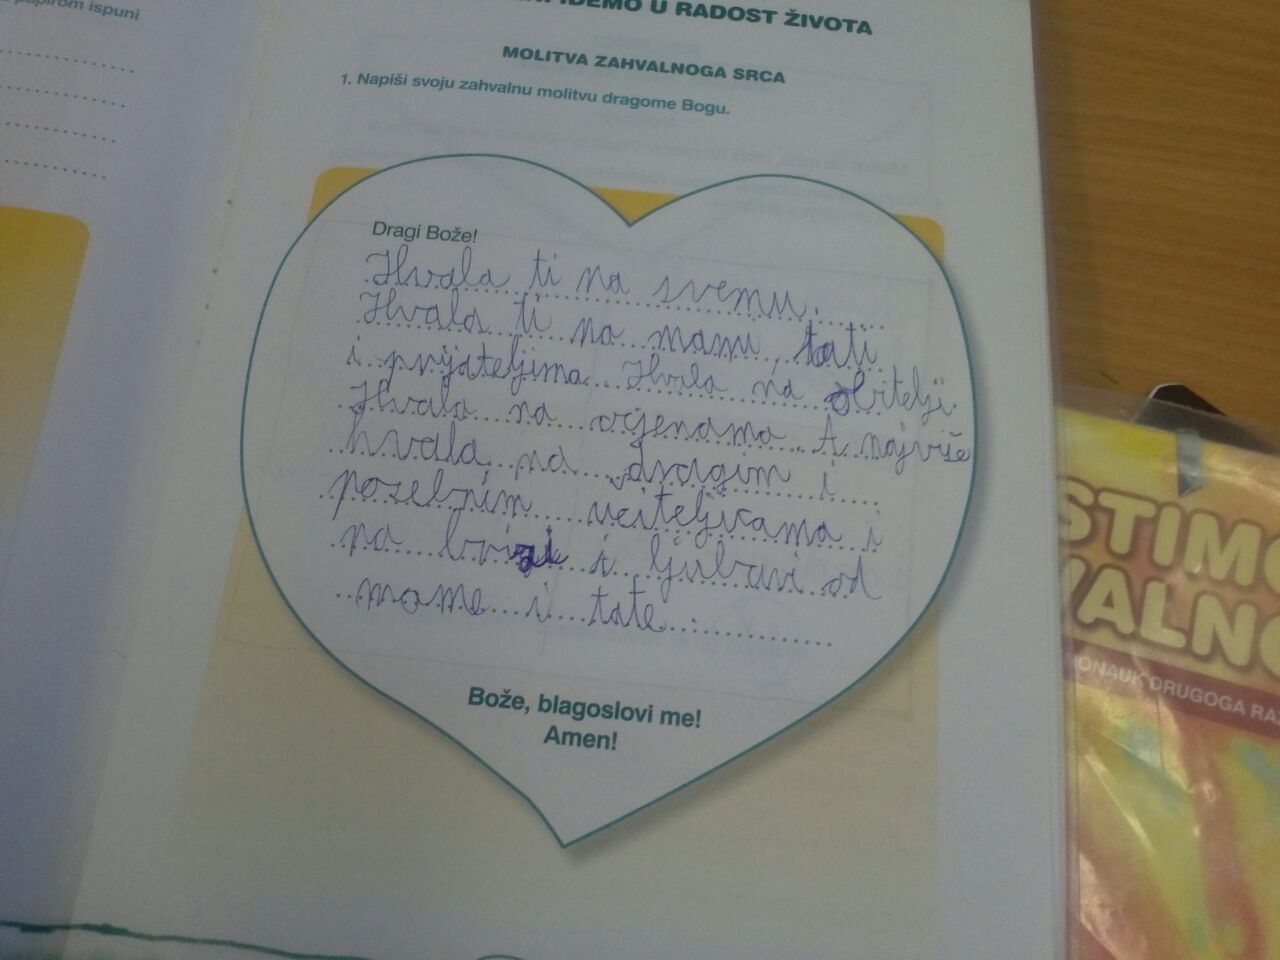 papirom ispuni
IDEMO U RADOST ŽIVOTA
MOLITVA ZAHVALNOGA SRCA
1. Napiši svoju zahvalnu molitvu dragome Bogu.
Dragi Bože!
Hvala ti na svemu.
Hvala ti na mami, tati
i prijateljima. Hvala na obitelji.
Hvala na ocjenama. A najviše
hvala na dragim i
posebnim učiteljicama i
na brizi i ljubavi od
mame i tate.
Bože, blagoslovi me!
Amen!
STIMO
VALNO
ONAUK DRUGOGA RA